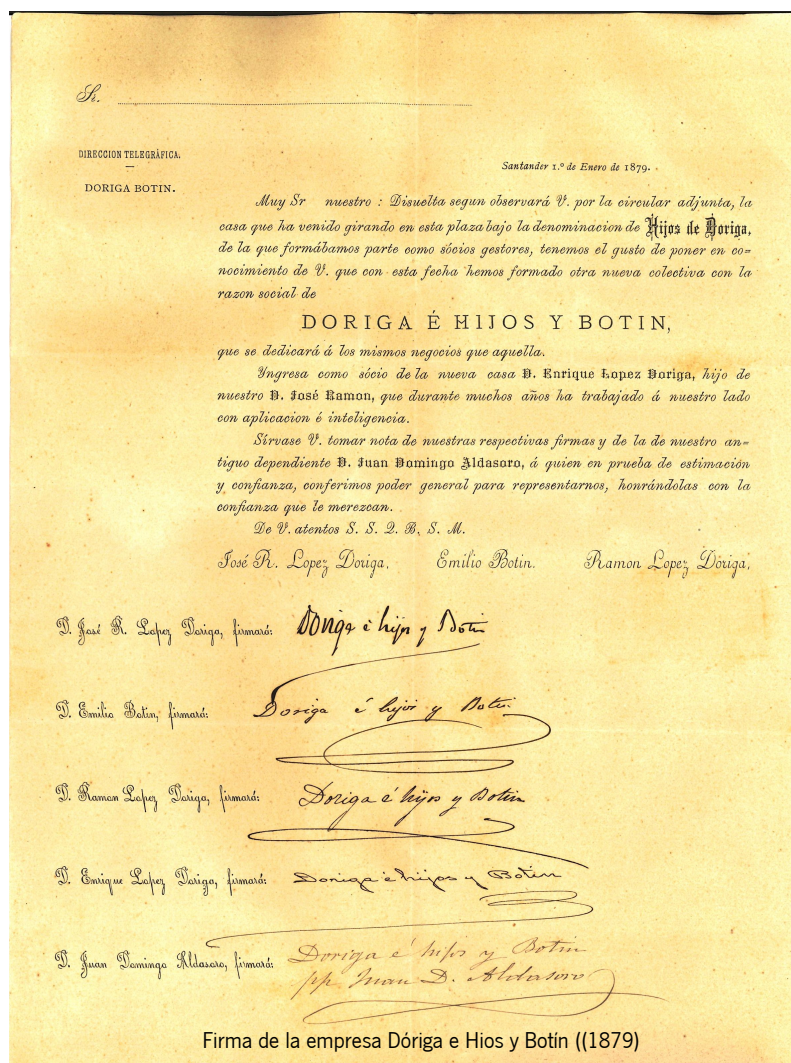 Sr.
DIRECCION TELEGRÁFICA.
DORIGA BOTIN.
Santander 1.º de Enero de 1879.
Muy Sr nuestro : Disuelta segun observará V. por la circular adjunta, la
casa que ha venido girando en esta plaza bajo la denominacion de Hijos de Doriga,
de la que formábamos parte como sócios gestores, tenemos el gusto de poner en co=
nocimiento de V. que con esta fecha hemos formado otra nueva colectiva con la
razon social de
DORIGA É HIJOS Y BOTIN,
que se dedicará á los mismos negocios que aquella.
Yngresa como sócio de la nueva casa D. Enrique Lopez Doriga, hijo de
nuestro D. José Ramon, que durante muchos años ha trabajado á nuestro lado
con aplicacion é inteligencia.
Sírvase V. tomar nota de nuestras respectivas firmas y de la de nuestro an=
tiguo dependiente D. Juan Domingo Aldasoro, á quien en prueba de estimación
y confianza, conferimos poder general para representarnos, honrándolas con la
confianza que le merezcan.
De V. atentos S. S. Q. B. S. M.
José R. Lopez Doriga, Emilio Botin. Ramon Lopez Doriga,
D. José R. Lopez Doriga, firmará: Doriga é hijos y Botin
D. Emilio Botin, firmará: Doriga é hijos y Botin
D. Ramon Lopez Doriga, firmará: Doriga é hijos y Botin
D. Enrique Lopez Doriga, firmará: Doriga é hijos y Botin
D. Juan Domingo Aldasoro, firmará: Doriga é hijos y Botin
pp Juan D. Aldasoro
Firma de la empresa Dóriga e Hios y Botín ((1879)